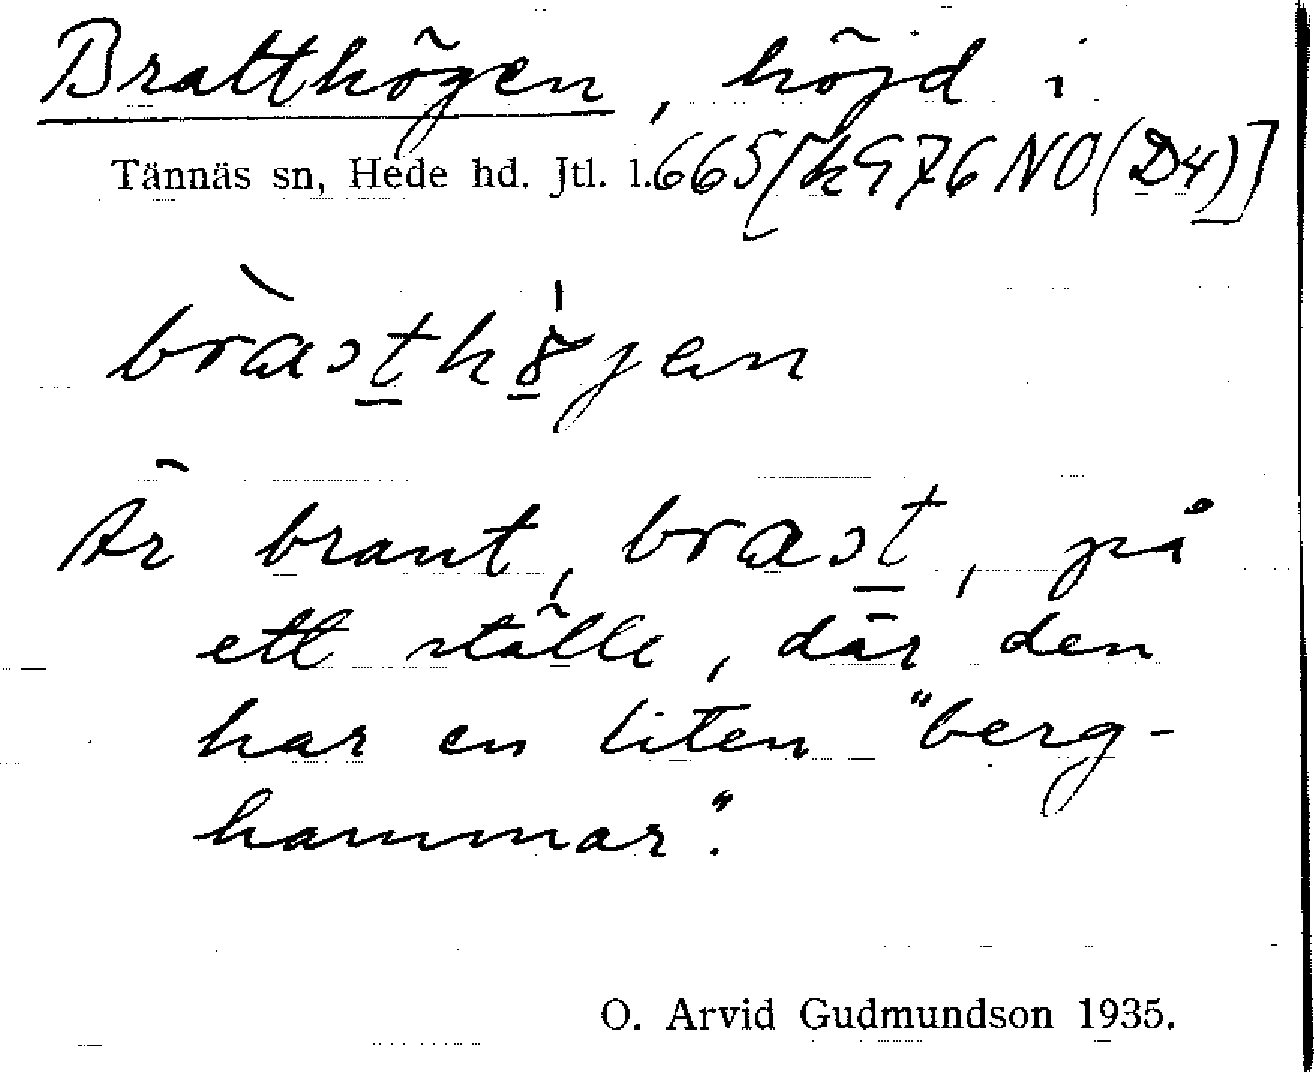 Bratthögen, höjd i
Tännäs sn, Hede hd. Jtl. l. 665 [k 976 NO (D4)]
Är brant, på
ett ställe, där den
har en liten "berg-
hammar".
O. Arvid Gudmundson 1935.